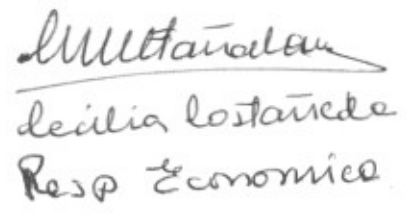 Cecilia Castañeda
Resp Economica